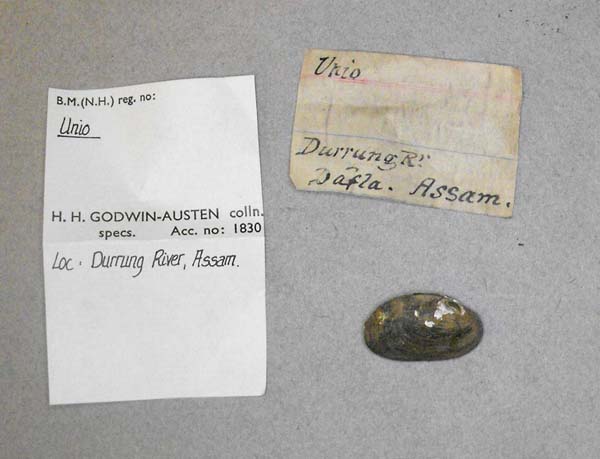 B.M.(N.H.) reg. no:
Unio
H. H. GODWIN-AUSTEN colln.
specs. Acc. no: 1830
Loc. Durrung River, Assam.
Unio
Durrung Rr.
Dafla. Assam.